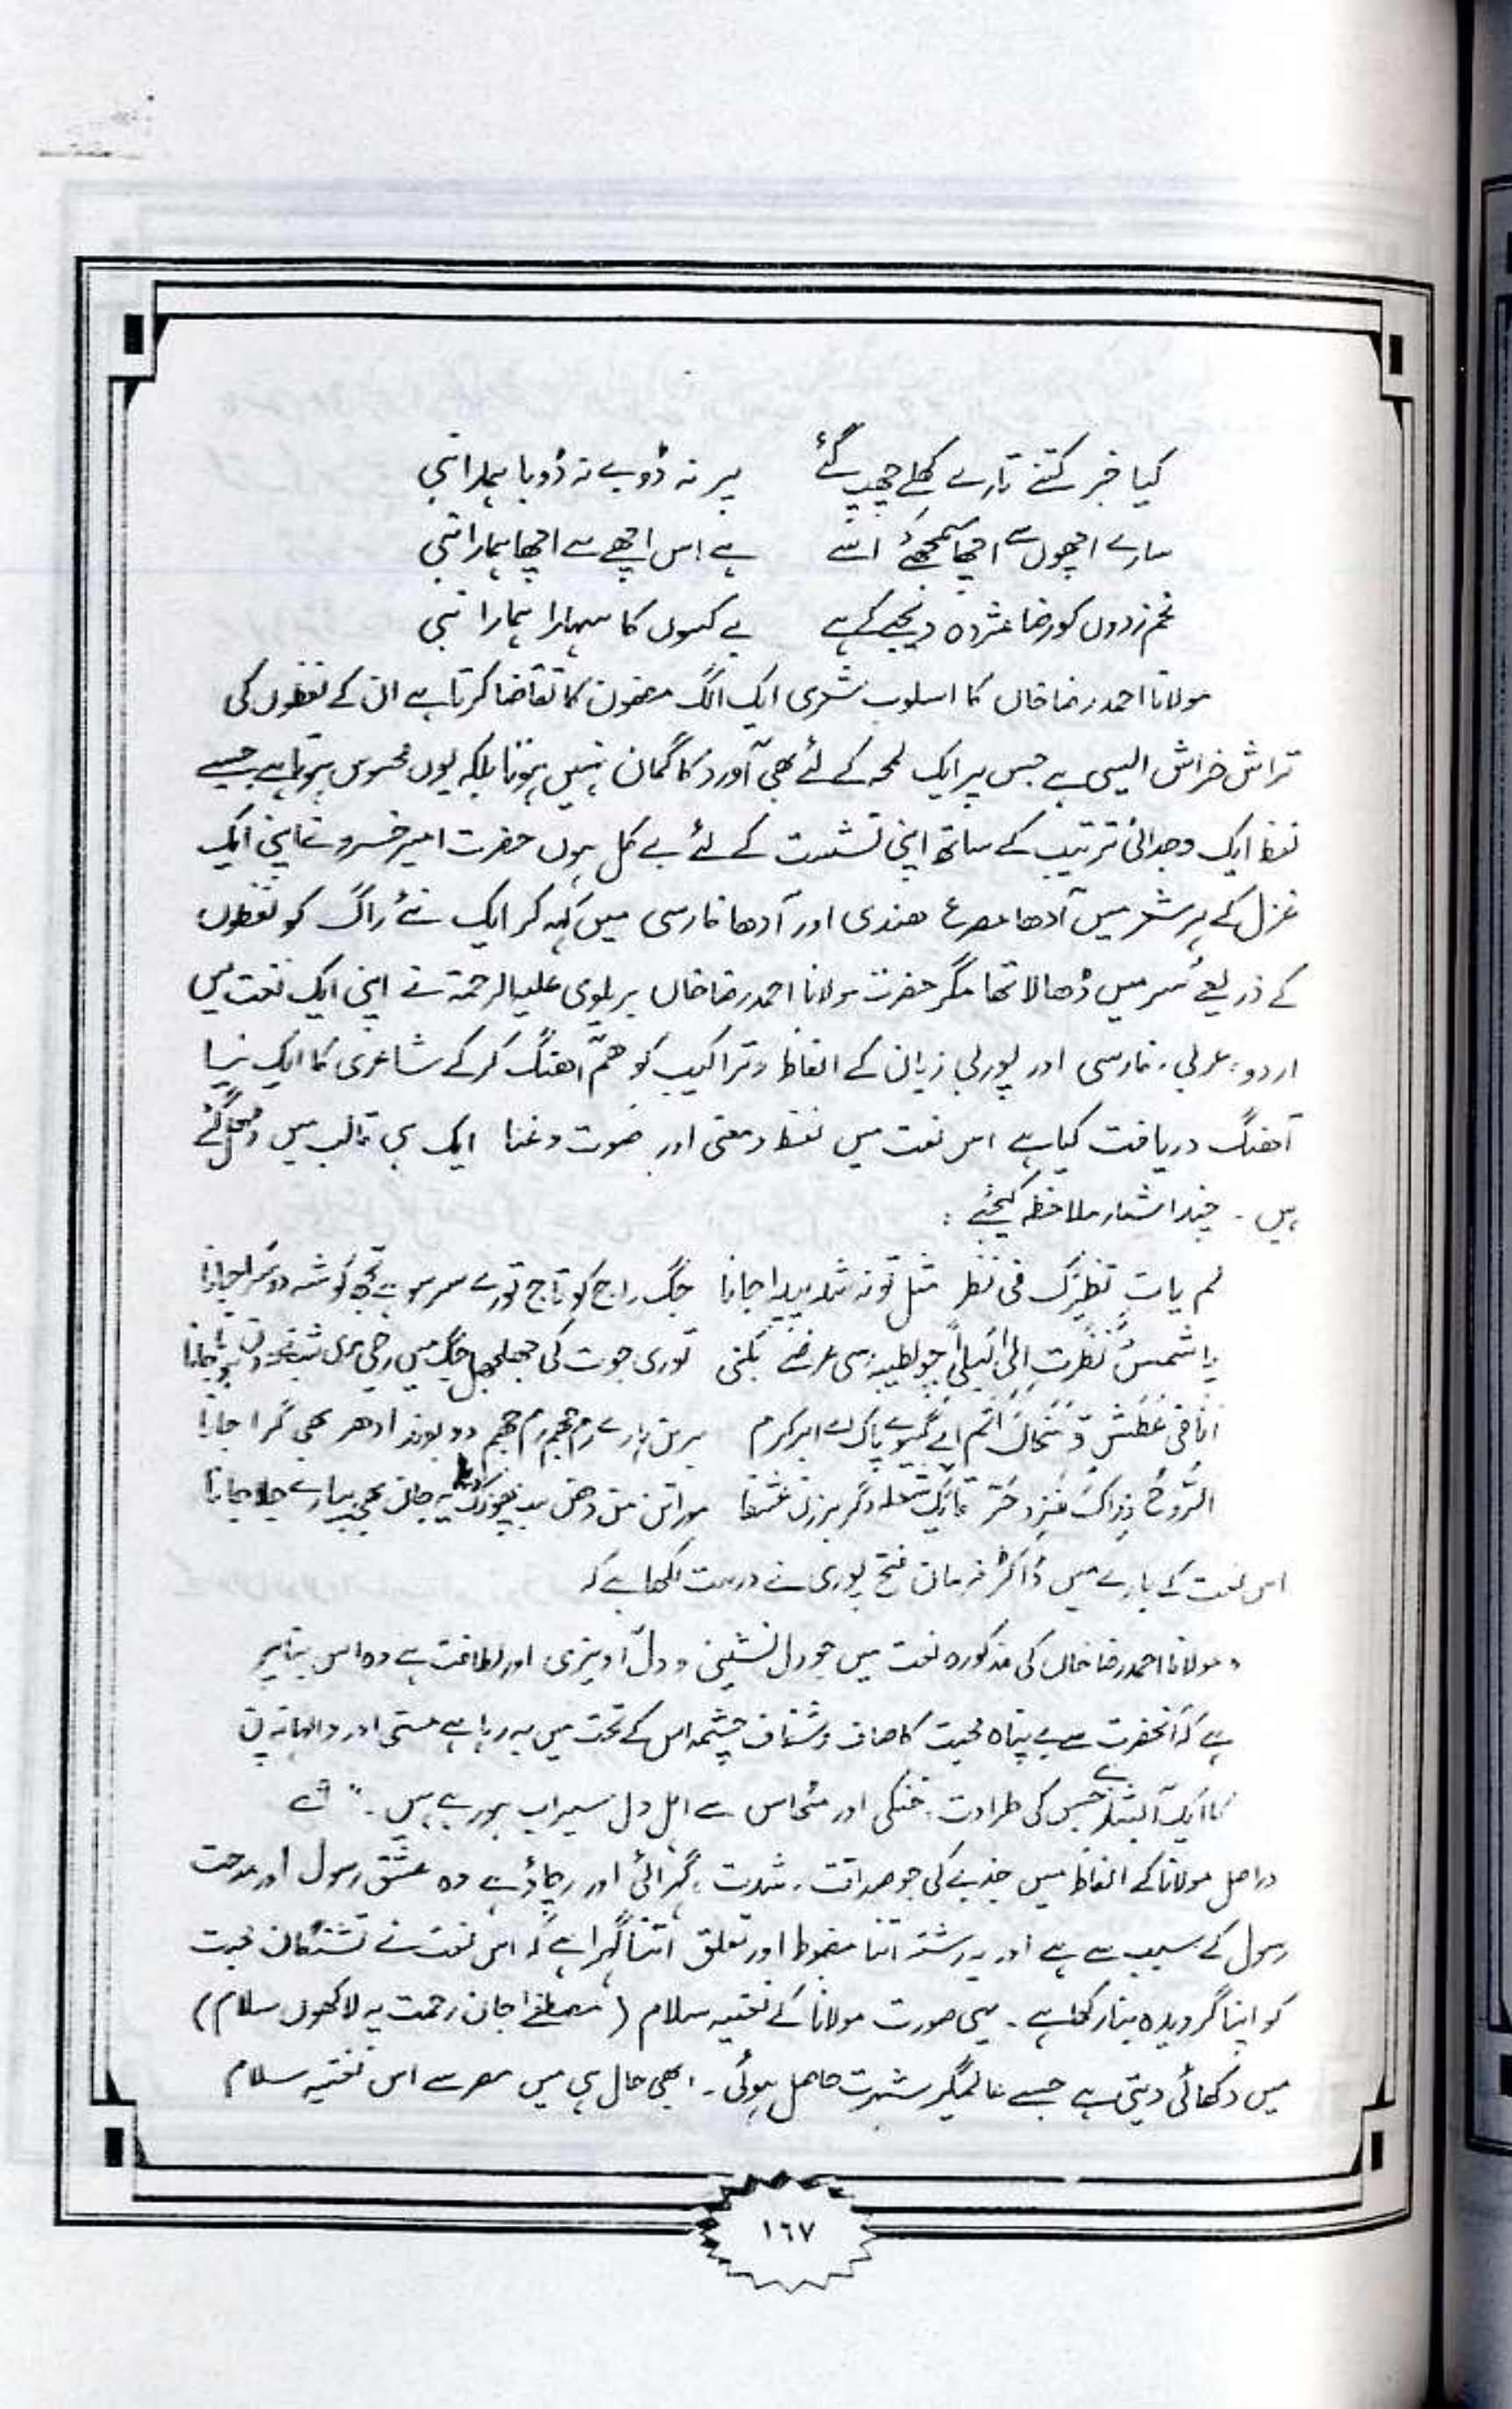 کیا خبر کتنے تارے کھلے چھپ گئے پر نہ ڈوبے نہ ڈوبا ہمارا نبی
سارے اچھوں سے اچھا سمجھئے اسے ہے اس اچھے سے اچھا ہمارا نبی
غم زدوں کو رضا مژدہ دیجے کہ ہے بے کسوں کا سہارا ہمارا نبی
مولانا احمد رضا خاں کا اسلوب شعری ایک الگ مضمون کا تقاضا کرتا ہے ان کے لفظوں کی
تراش خراش ایسی ہے جس پر ایک لمحہ کے لئے بھی آورد کا گمان نہیں ہوتا بلکہ یوں محسوس ہوتا ہے جیسے
لفظ ایک وجدانی ترتیب کے ساتھ اپنی نشست کے لئے بے کل ہوں حضرت امیر خسرو نے اپنی ایک
غزل کے ہر شعر میں آدھا مصرع ھندی اور آدھا فارسی میں کہہ کر ایک نئے راگ کو لفظوں
کے ذریعے سُر میں ڈھالا تھا مگر حضرت مولانا احمد رضا خاں بریلوی علیہ الرحمۃ نے اپنی ایک نعت میں
اردو، عربی، فارسی اور پوربی زبان کے الفاظ و تراکیب کو ھم آھنگ کر کے شاعری کا ایک نیا
آھنگ دریافت کیا ہے اس نعت میں لفظ و معنی اور صوت و غنا ایک ہی قالب میں ڈھل گئے
ہیں ۔ چند اشعار ملاحظہ کیجئے :
لم یات نظیرک فی نظر مثل تو نہ شد پیدا جانا جگ راج کو تاج تورے سر سو ہے تجھ کو شہ دوسرا جانا
یا شمس نظرت الی لیلی چو بطیبہ رسی عرضے بکنی توری جوت کی جھلجھل جگ میں رچی مری شب نے نہ دن ہونا جانا
انا فی عطش وّ سخاک اتم اے گیسوے پاک اے ابر کرم برسن ہارے رم جھم رم جھم دو بوند ادھر بھی گرا جانا
الروح فداک فزد حرقا یک شعلہ دگر برزن عشقا مورا تن من دھن سب پھونک دیا یہ جان بھی پیارے جلا جانا
اس نعت کے بارے میں ڈاکٹر فرمان فتح پوری نے درست لکھا ہے کہ
" مولانا احمد رضا خاں کی مذکورہ نعت میں جو دل نشینی و دل آویزی اور لطافت ہے وہ اس بنا پر
ہے کہ آنحضرت سے بے پناہ محبت کا صاف و شفاف چشمہ اس کے تحت میں بہہ رہا ہے مستی اور والہانہ پن
کا ایک آبشار ہے جس کی طراوت ، خنکی اور مٹھاس سے اہل دل سیراب ہو رہے ہیں ۔"
دراصل مولانا کے الفاظ میں جذبے کی جو صداقت ، شدت ، گہرائی اور رچاؤ ہے وہ عشق رسول اور مدحت
رسول کے سبب سے ہے اور یہ رشتہ اتنا مضبوط اور تعلق اتنا گہرا ہے کہ اس نعت نے تشنگان محبت
کو اپنا گرویدہ بنا رکھا ہے ۔ یہی صورت مولانا کے نعتیہ سلام ( مصطفے جان رحمت پہ لاکھوں سلام )
میں دکھائی دیتی ہے جسے عالمگیر شہرت حاصل ہوئی ۔ ابھی حال ہی میں مصر سے اس نعتیہ سلام
١٦٧